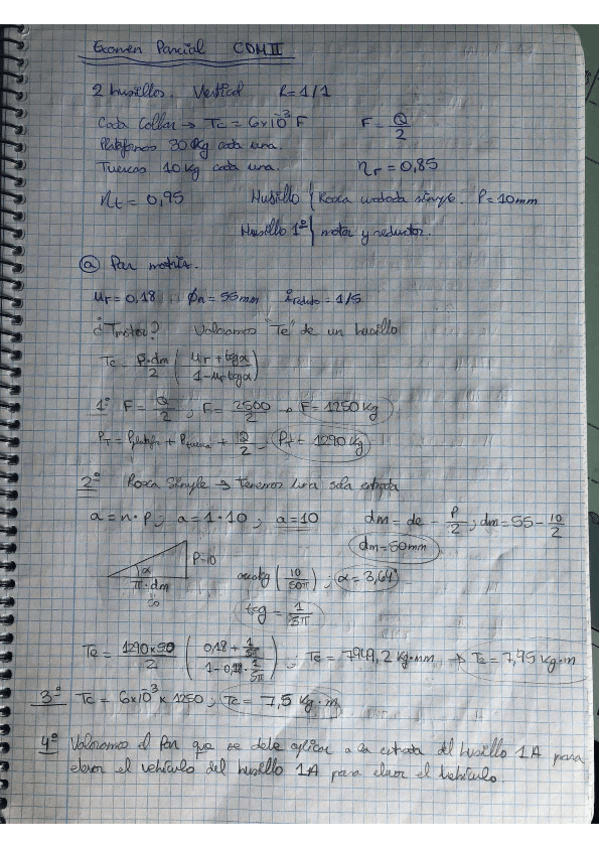 Examen Parcial CDM II
2 husillos. Vertical R=1/1
Cada Collar → Tc = 6×10⁻³ F F = Q/2
Plataformas 30 Kg cada una.
Tuercas 10 Kg cada una. ηr = 0,85
ηt = 0,95 Husillo { Rosca cuadrada simple. P = 10mm
Husillo 1º } motor y reductor.
ⓐ Par motriz.
μr = 0,18 ϕn = 55mm ireductor = 1/5
¿Tmotor? Valoramos "Te" de un husillo
Te = P·dm/2 ( μr + tgα / 1 - μr tgα )
1º F = Q/2 ; F = 2500/2 → F = 1250 Kg
PT = Pplataf + Ptuerca + Q/2 ; PT = 1290 Kg
2º Rosca Simple → Tenemos una sola entrada
a = n·p ; a = 1·10 ; a = 10 dm = de - P/2 ; dm = 55 - 10/2
dm = 50mm
P=10
α
π·dm
50
arctg (10/50π) ; α = 3,64º
tg = 1/5π
Te = 1290×50/2 ( 0,18 + 1/5π / 1 - 0,18 · 1/5π ) ; Te = 7949,2 Kg·mm → Te = 7,95 Kg·m
3º Tc = 6×10⁻³ × 1250 ; Tc = 7,5 Kg·m
4º Valoramos el Par que se debe aplicar a la entrada del husillo 1A para
elevar el vehículo del husillo 1A para elevar el vehículo.